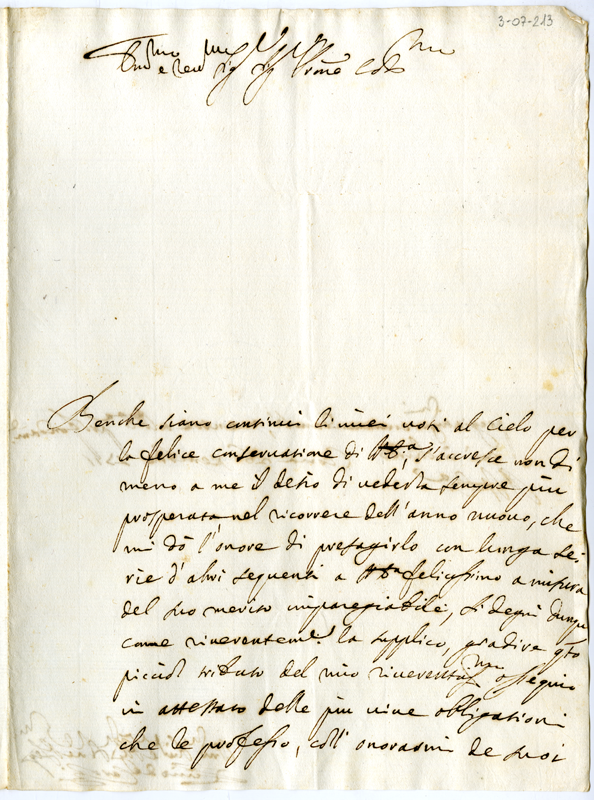 3-07-213
Ill.mo e Rev.mo Sig.r Sig.r P.rone Col.mo
Benche siano continui li miei voti al Cielo per
la felice conservatione di V.S. Ill.ma, s'accresce non di
meno a me il desio di vederla sempre più
prosperata nel ricorrere dell'anno nuovo, che
mi dò l'onore di presagirlo con lunga se-
rie d'altri seguenti a felicissimo a misura
del suo merito impareggiabile, si degni dunque
come riverentem.te la supplico, gradire q.to
picciol tributo del mio riverentiss.mo osseguio
in attestato delle più vive obligationi
che le professo, coll'onorarmi de suoi